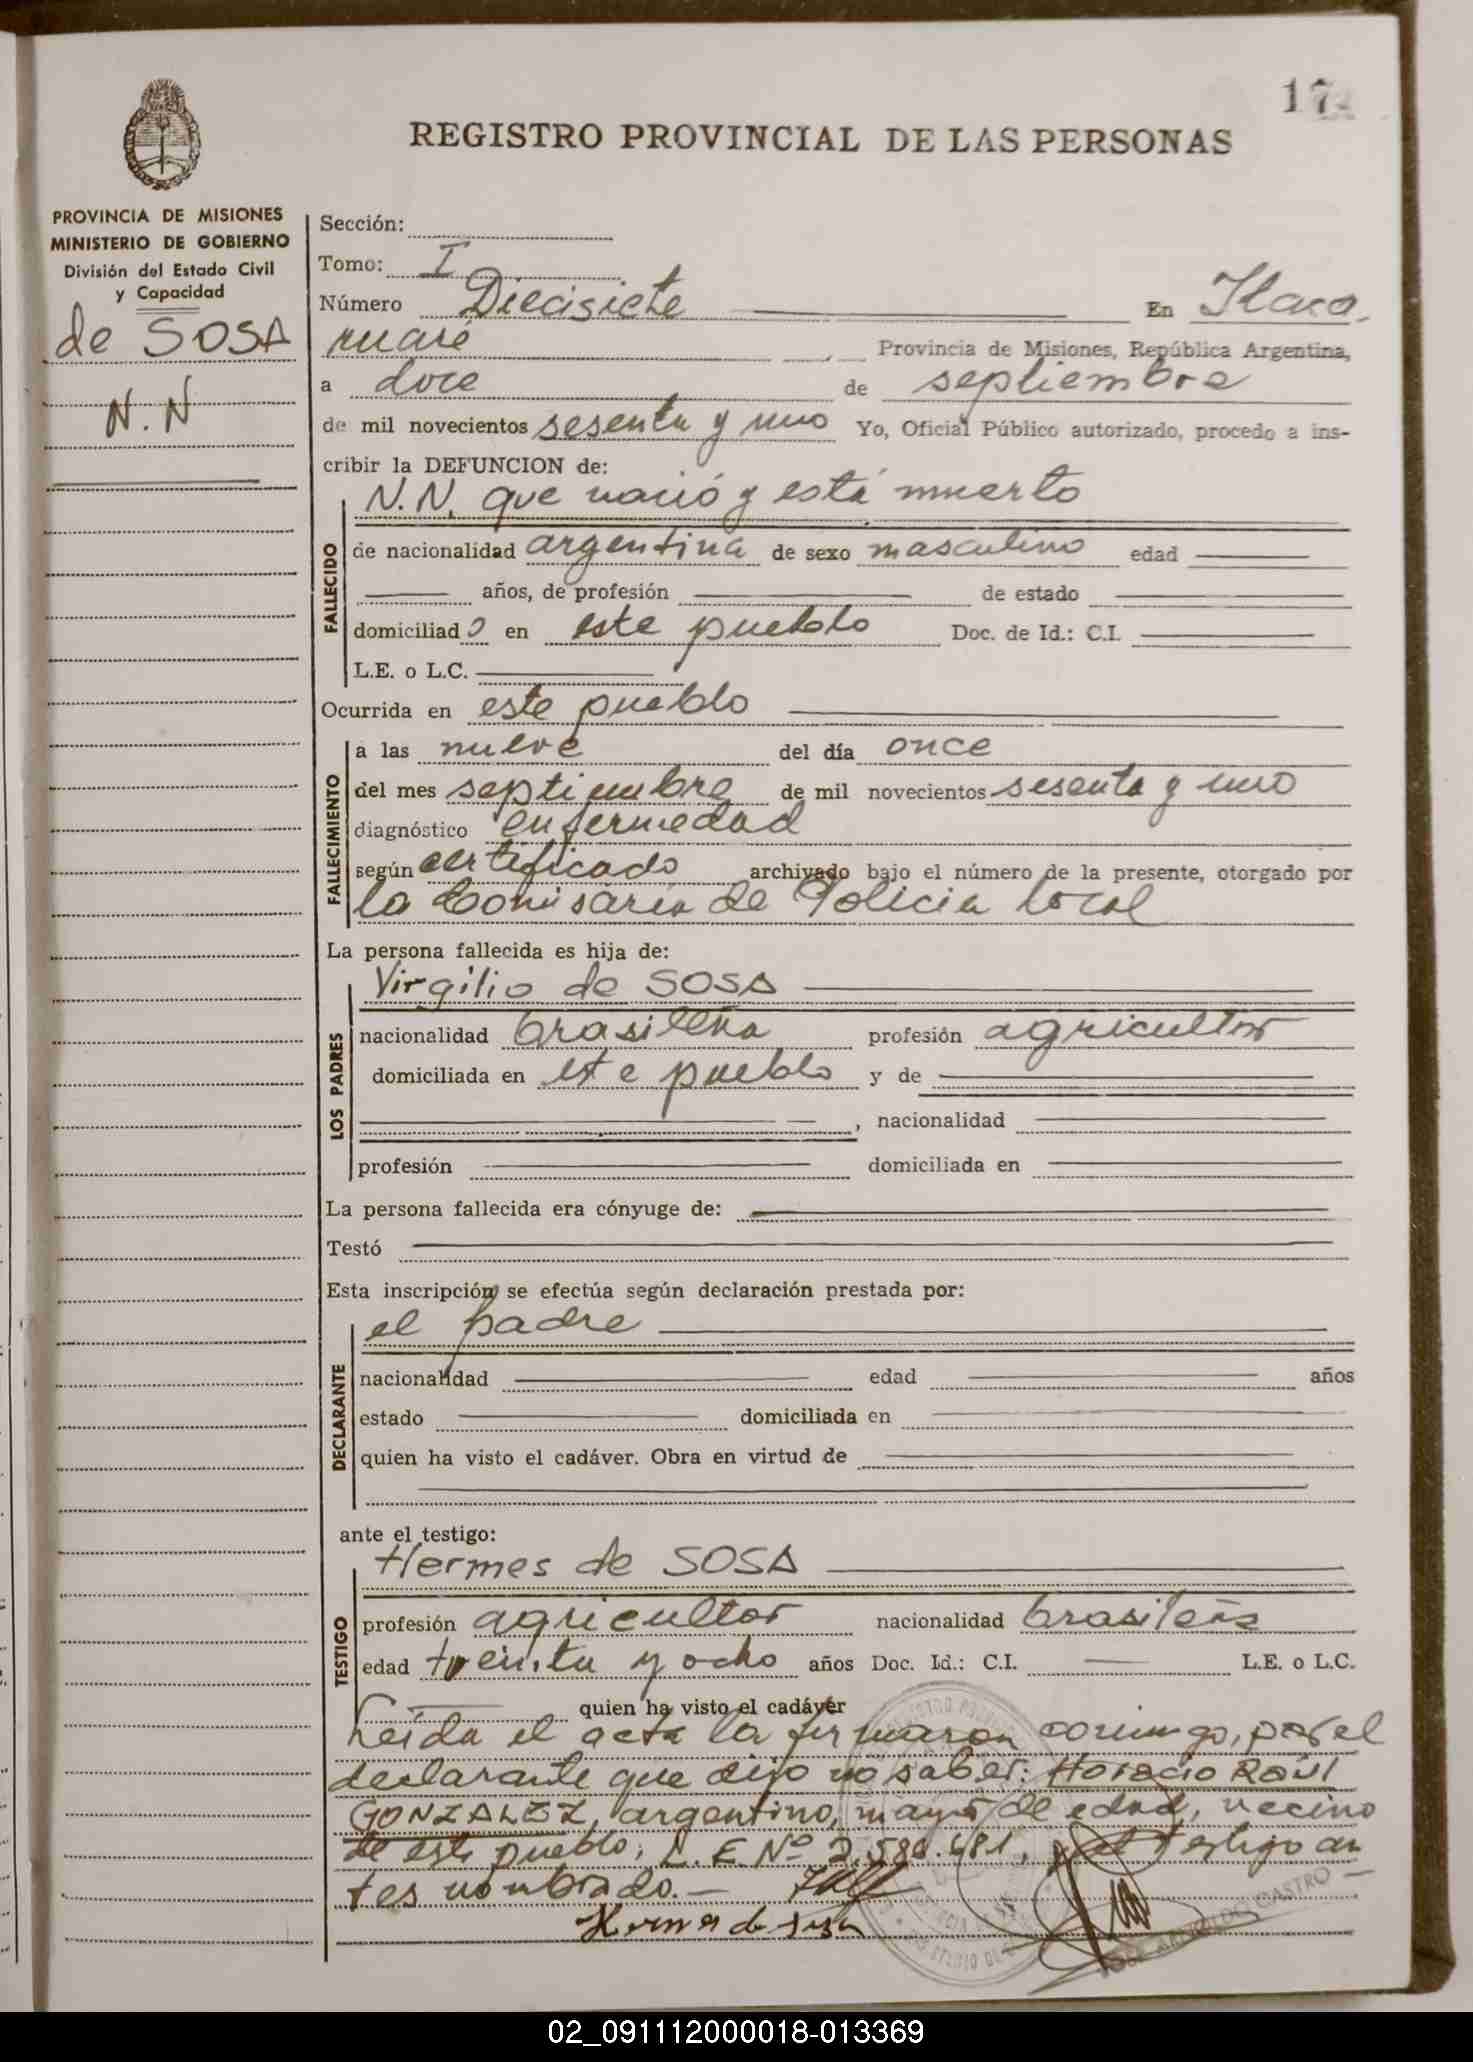 17
REGISTRO PROVINCIAL DE LAS PERSONAS
PROVINCIA DE MISIONES
MINISTERIO DE GOBIERNO
División del Estado Civil
y Capacidad
de SOSA
N.N
Sección:
Tomo: I
Número Diecisiete En Itaca,
ruaré Provincia de Misiones, República Argentina,
a doce de septiembre
de mil novecientos sesenta y uno Yo, Oficial Público autorizado, procedo a ins-
cribir la DEFUNCION de:
N.N. que nació y está muerto
FALLECIDO
de nacionalidad argentina de sexo masculino edad
años, de profesión de estado
domiciliado en este pueblo Doc. de Id.: C.I.
L.E. o L.C.
Ocurrida en este pueblo
FALLECIMIENTO
a las nueve del día once
del mes septiembre de mil novecientos sesenta y uno
diagnóstico enfermedad
según certificado archivado bajo el número de la presente, otorgado por
la Comisaría de Policia local
La persona fallecida es hija de:
LOS PADRES
Virgilio de SOSA
nacionalidad brasileña profesión agricultor
domiciliada en este pueblo y de
, nacionalidad
profesión domiciliada en
La persona fallecida era cónyuge de:
Testó
Esta inscripción se efectúa según declaración prestada por:
DECLARANTE
el padre
nacionalidad edad años
estado domiciliada en
quien ha visto el cadáver. Obra en virtud de
ante el testigo:
TESTIGO
Hermes de SOSA
profesión agricultor nacionalidad brasileña
edad treinta y ocho años Doc. Id.: C.I. L.E. o L.C.
quien ha visto el cadáver
Leída el acta la firmaron conmigo, por el
declarante que dijo no saber: Horacio Raúl
GONZALEZ, argentino, mayor de edad, vecino
de este pueblo, L.E. Nº y el testigo an
tes nombrado.—
Hermes de Sosa
CASTRO
02_091112000018-013369